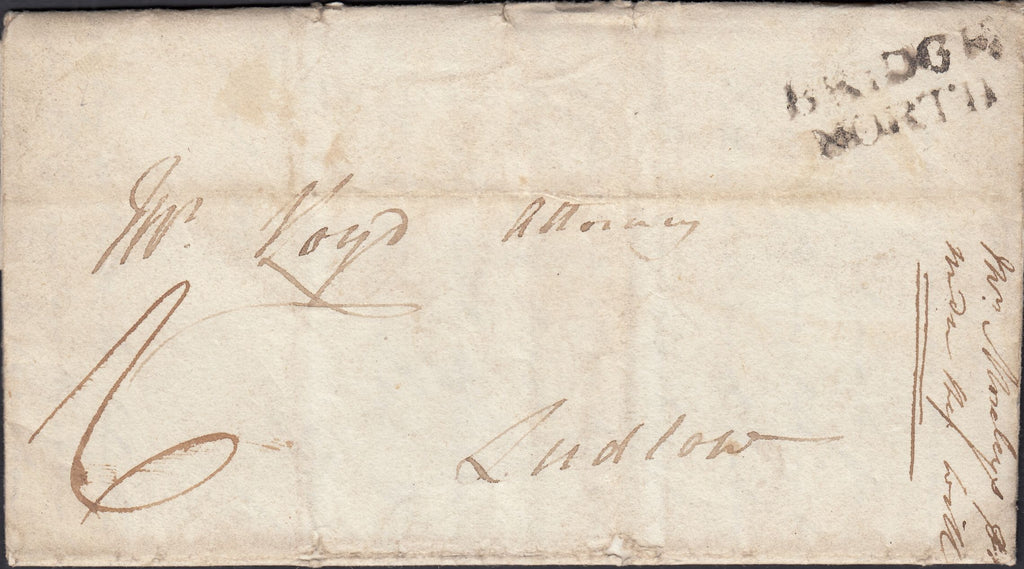 BRIDGE
NORTH
Mr. Loyd Attorney
6
Ludlow
Mr.
will